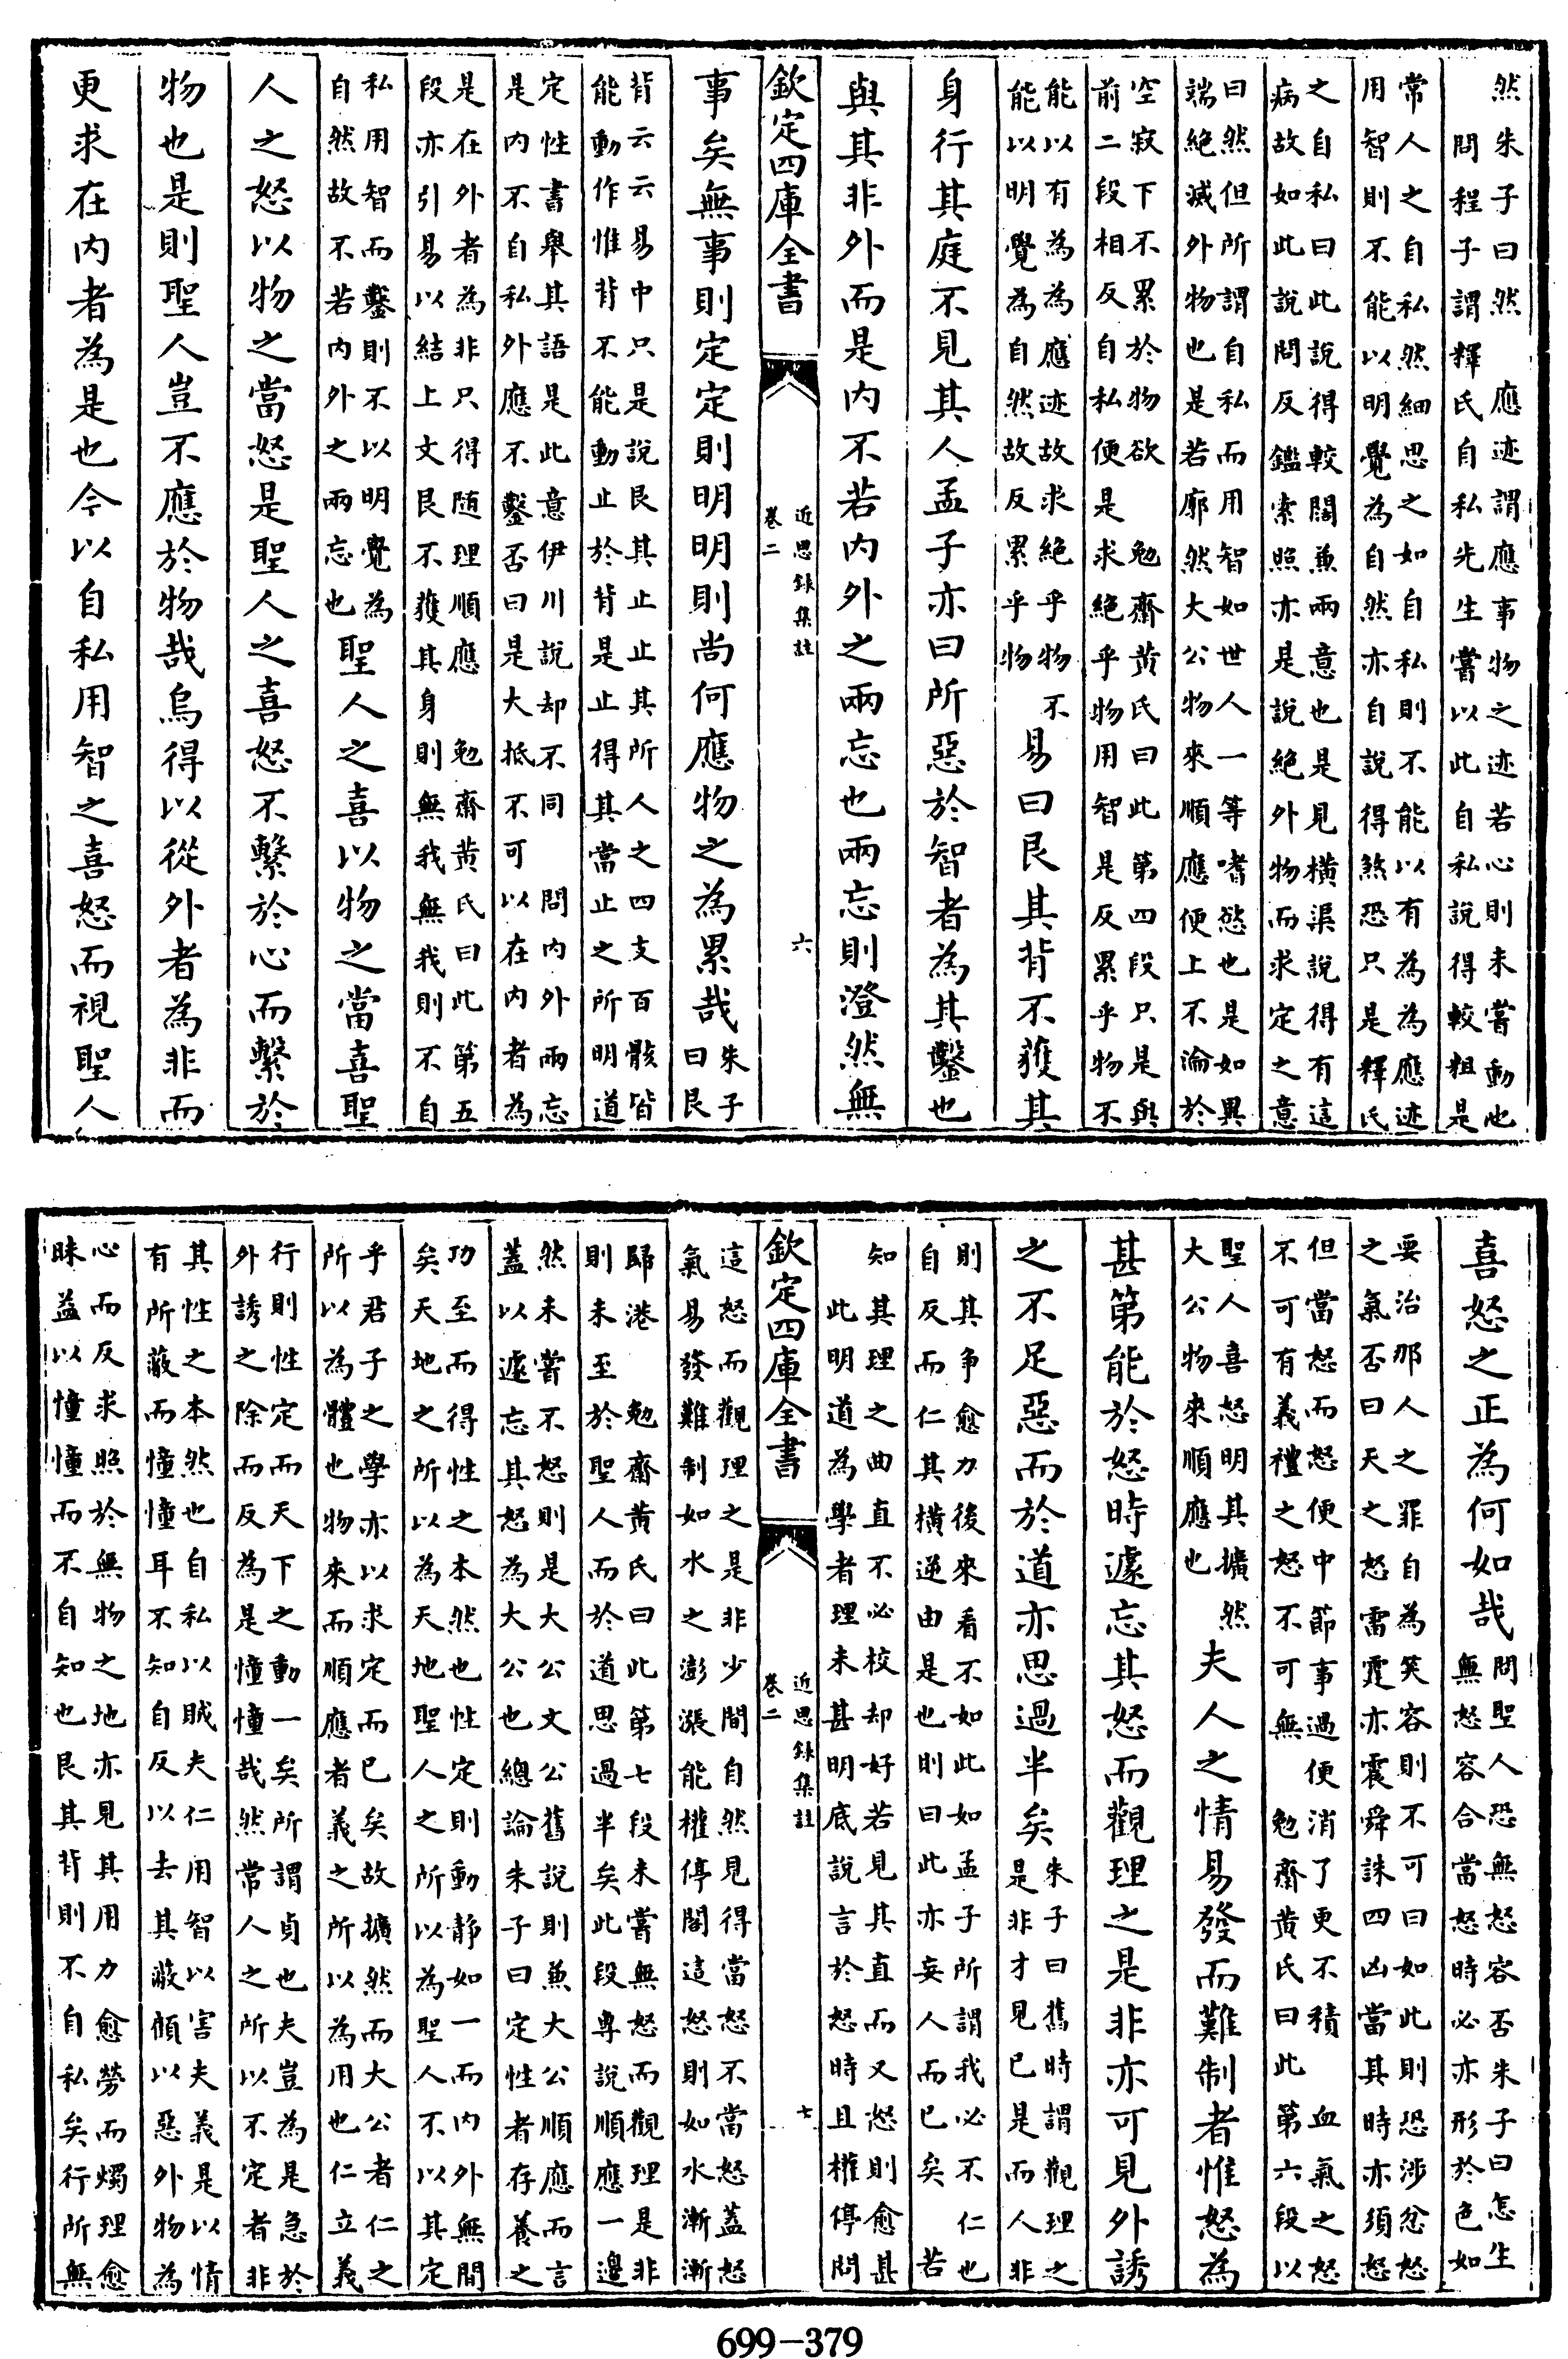 然朱子曰然　應迹謂應事物之迹若心則未嘗動也
問程子謂釋氏自私先生嘗以此自私說得較粗是
常人之自私然細思之如自私則不能以有為為應迹
用智則不能以明覺為自然亦自說得煞恐只是釋氏
之自私曰此說得較闊兼兩意也是見橫渠說得有這
病故如此說問反鑑索照亦是說絕外物而求定之意
曰然但所謂自私而用智如世人一等嗜慾也是如異
端絕滅外物也是若廓然大公物來順應便上不淪於
空寂下不累於物欲　勉齋黃氏曰此第四段只是與
前二段相反自私便是求絕乎物用智是反累乎物不
能以有為為應迹故求絕乎物不
能以明覺為自然故反累乎物
易曰艮其背不獲其
身行其庭不見其人孟子亦曰所惡於智者為其鑿也
與其非外而是内不若内外之兩忘也兩忘則澄然無
欽定四庫全書　近思録集註　卷二　六
事矣無事則定定則明明則尚何應物之為累哉
朱子
曰艮
背云云易中只是說艮其止止其所人之四支百骸皆
能動作惟背不能動止於背是止得其當止之所明道
定性書舉其語是此意伊川說却不同　問内外兩忘
是内不自私外應不鑿否曰是大抵不可以在内者為
是在外者為非只得隨理順應　勉齋黃氏曰此第五
段亦引易以結上文艮不獲其身則無我無我則不自
私用智而鑿則不以明覺為
自然故不若内外之兩忘也
聖人之喜以物之當喜聖
人之怒以物之當怒是聖人之喜怒不繫於心而繫於
物也是則聖人豈不應於物哉烏得以從外者為非而
更求在内者為是也今以自私用智之喜怒而視聖人
喜怒之正為何如哉
問聖人恐無怒容否朱子曰怎生
無怒容合當怒時必亦形於色如
要治那人之罪自為笑容則不可曰如此則恐涉忿怒
之氣否曰天之怒雷霆亦震舜誅四凶當其時亦須怒
但當怒而怒便中節事過便消了更不積　血氣之怒
不可有義禮之怒不可無　勉齋黃氏曰此第六段以
聖人喜怒明其擴然
大公物來順應也
夫人之情易發而難制者惟怒為
甚第能於怒時遽忘其怒而觀理之是非亦可見外誘
之不足惡而於道亦思過半矣
朱子曰舊時謂觀理之
是非才見已是而人非
則其争愈力後來看不如此如孟子所謂我必不仁也
自反而仁其橫逆由是也則曰此亦妄人而已矣　若
知其理之曲直不必校却好若見其直而又怒則愈甚
此明道為學者理未甚明底說言於怒時且權停閣
欽定四庫全書　近思録集註　卷二　七
這怒而觀理之是非少間自然見得當怒不當怒蓋怒
氣易發難制如水之澎漲能權停閣這怒則如水漸漸
歸港　勉齋黃氏曰此第七段未嘗無怒而觀理是非
則未至於聖人而於道思過半矣此段專說順應一邊
然未嘗不怒則是大公文公舊說則兼大公順應而言
蓋以遽忘其怒為大公也總論朱子曰定性者存養之
功至而得性之本然也性定則動静如一而内外無間
矣天地之所以為天地聖人之所以為聖人不以其定
乎君子之學亦以求定而已矣故擴然而大公者仁之
所以為體也物來而順應者義之所以為用也仁立義
行則性定而天下之動一矣所謂貞也夫豈為是急於
外誘之除而反為是憧憧哉然常人之所以不定者非
其性之本然也自私以賊夫仁用智以害夫義是以情
有所蔽而憧憧耳不知自反以去其蔽顧以惡外物為
心而反求照於無物之地亦見其用力愈勞而燭理愈
昧益以憧憧而不自知也艮其背則不自私矣行所無
699-379